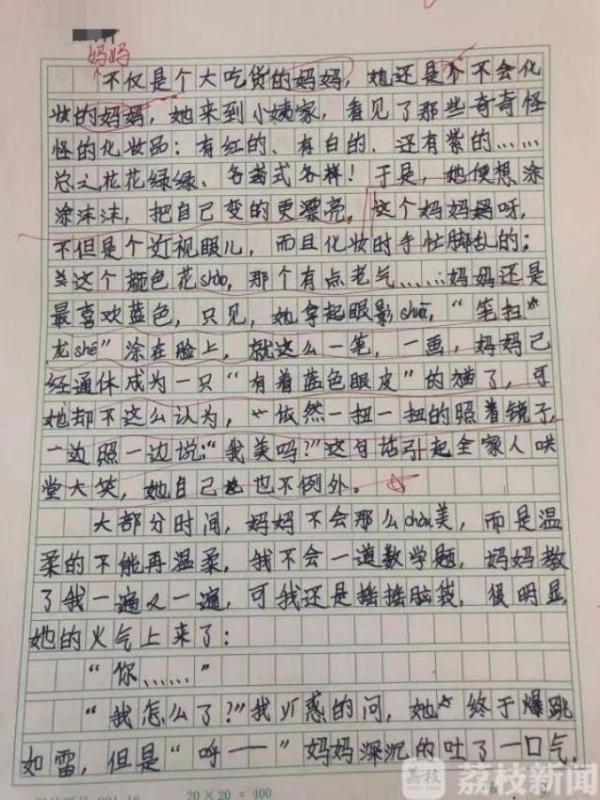 妈妈
不仅是个大吃货的妈妈，她还是个不会化
妆的妈妈，她来到小姨家，看见了那些奇奇怪
怪的化妆品：有红的、有白的、还有紫的……
总之花花绿绿、各式各样！于是，她便想涂
涂沫沫，把自己变的更漂亮，这个妈妈呀，
不但是个近视眼儿，而且化妆时手忙脚乱的；
这个颜色花shào，那个有点老气……妈妈还是
最喜欢蓝色，只见，她拿起眼影shuā，“笔扫
龙shé”涂在脸上，就这么一笔，一画，妈妈已
经通体成为一只“有着蓝色眼皮”的猫了，可
她却不这么认为，依然一扭一扭的照着镜子，
一边照一边说：“我美吗？”这句话引起全家人哄
堂大笑，她自己也不例外。
大部分时间，妈妈不会那么chòu美，而是温
柔的不能再温柔，我不会一道数学题，妈妈教
了我一遍又一遍，可我还是摇摇脑袋，很明显，
她的火气上来了：
“你……”
“我怎么了？”我疑惑的问，她终于爆跳
如雷，但是“呼——”妈妈深沉的吐了一口气，
20×20=400
荔枝 荔枝新闻